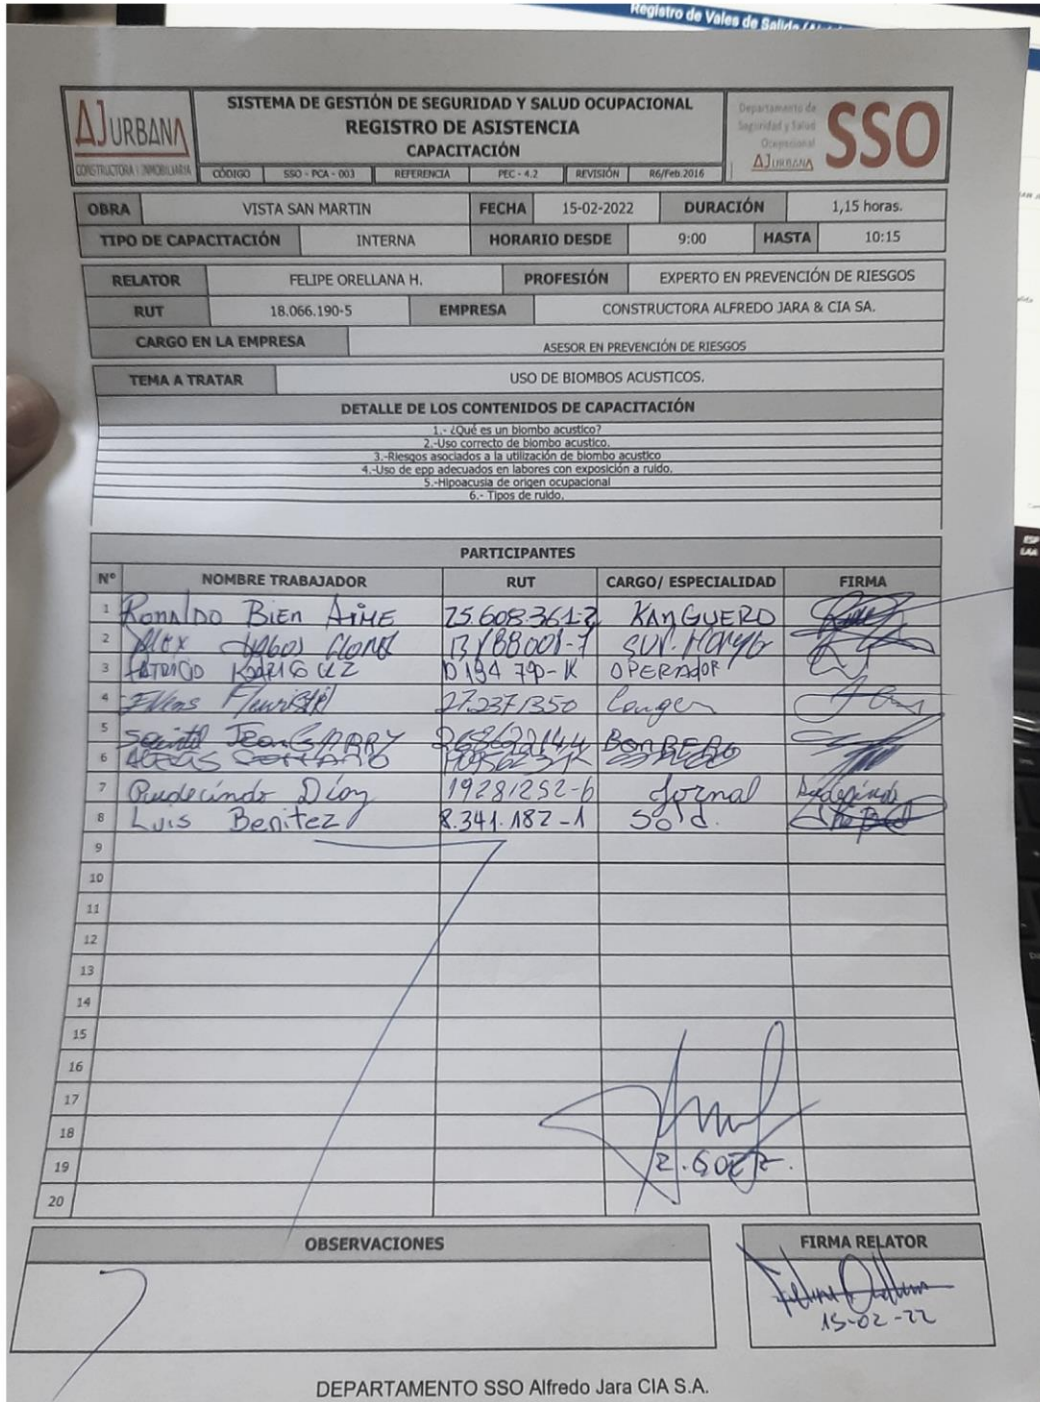 Registro de Vales de Salida
AJURBANA
CONSTRUCTORA E INMOBILIARIA
SISTEMA DE GESTIÓN DE SEGURIDAD Y SALUD OCUPACIONAL
REGISTRO DE ASISTENCIA
CAPACITACIÓN
CÓDIGO SSO - PCA - 003 REFERENCIA PEC - 4.2 REVISIÓN R6/Feb.2016
Departamento de
Seguridad y Salud
Ocupacional
AJURBANA
SSO
OBRA VISTA SAN MARTIN FECHA 15-02-2022 DURACIÓN 1,15 horas.
TIPO DE CAPACITACIÓN INTERNA HORARIO DESDE 9:00 HASTA 10:15
RELATOR FELIPE ORELLANA H. PROFESIÓN EXPERTO EN PREVENCIÓN DE RIESGOS
RUT 18.066.190-5 EMPRESA CONSTRUCTORA ALFREDO JARA & CIA SA.
CARGO EN LA EMPRESA ASESOR EN PREVENCIÓN DE RIESGOS
TEMA A TRATAR USO DE BIOMBOS ACUSTICOS.
DETALLE DE LOS CONTENIDOS DE CAPACITACIÓN
1.- ¿Qué es un biombo acustico?
2.-Uso correcto de biombo acustico.
3.-Riesgos asociados a la utilización de biombo acustico
4.-Uso de epp adecuados en labores con exposición a ruido.
5.-Hipoacusia de origen ocupacional
6.- Tipos de ruido.
PARTICIPANTES
N° NOMBRE TRABAJADOR RUT CARGO/ ESPECIALIDAD FIRMA
1 Ronaldo Bien Aime KANGUERO
2
3 OPERADOR
4
5 BOMBERO
6
7 Rudecindo Díaz 19281252-6 Jornal Rudecindo
8 Luis Benitez 8.341.182-1 Sold.
9
10
11
12
13
14
15
16
17
18
19
20
OBSERVACIONES
FIRMA RELATOR
15-02-22
DEPARTAMENTO SSO Alfredo Jara CIA S.A.